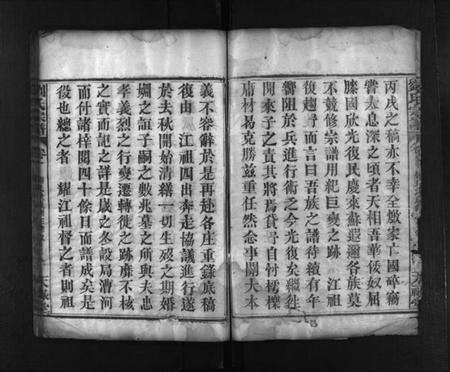 丙戌之稿亦不幸全燬家亡國碎竊
嘗太息深之頃者天相吾華倭奴屈
膝國欣光復民慶來蘇遐邇各族莫
不競修宗譜用紀巨變之跡 江祖
復趨予而言曰吾族之譜待續有年
嚮阻於兵進行術之今光復矣繼往
開來子之責其將焉貸予自忖樗櫟
庸材易克勝茲重任然念事關大本
義不容辭於是再赴各庄重錄底稿
復由 江祖四出奔走協議進行遂
於去秋開始清繕一切生歿之期婚
姻之誼子嗣之數兆墓之所與夫忠
孝義烈之行變遷轉徙之跡靡不核
之實而記之詳是歲之冬設局漕河
而付諸梓閱四十餘日而譜成矣是
役也總之者 耀江祖督之者則祖